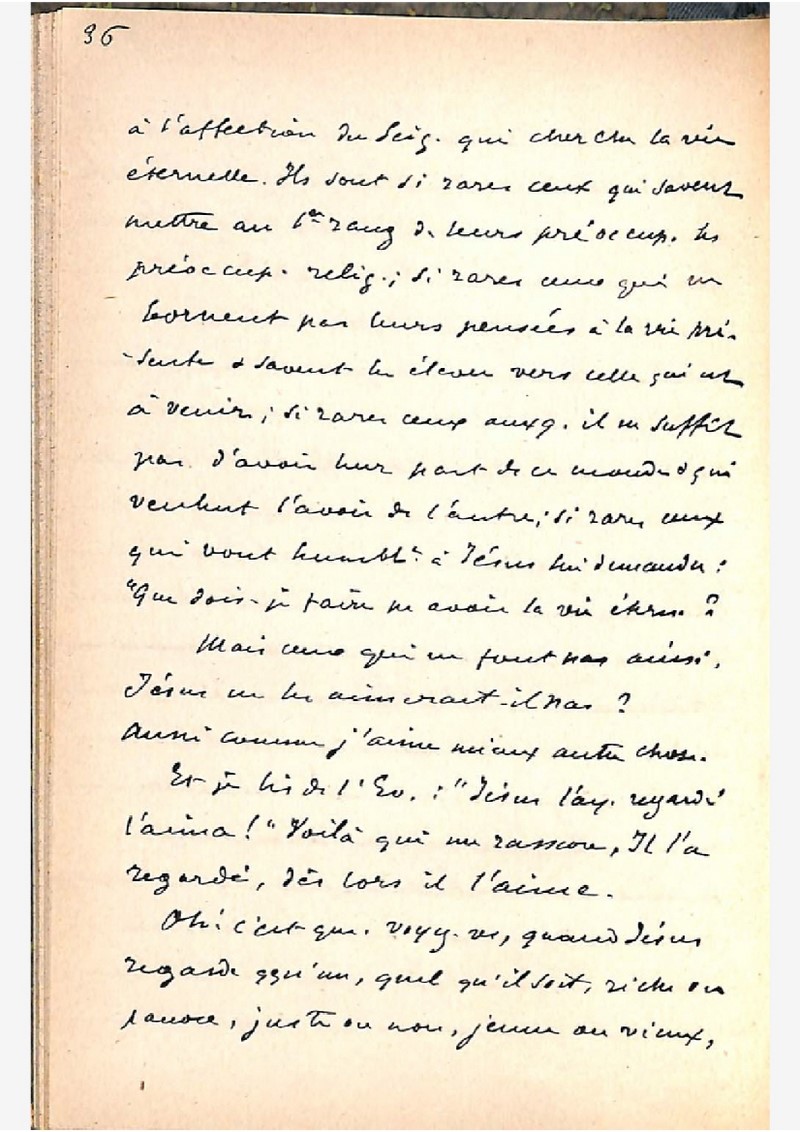 36
à l'affection du Seig. qui cherche la vie
éternelle. Ils sont si rares ceux qui savent
mettre au 1er rang de leurs préoccup. les
préoccup. relig.; si rares ceux qui ne
bornent pas leurs pensées à la vie pré-
-sente & savent les élever vers celle qui est
à venir; si rares ceux auxq. il ne suffit
pas d'avoir leur part de ce monde & qui
veulent l'avoir de l'autre; si rares ceux
qui vont humblt à Jésus lui demander:
"Que dois-je faire pr avoir la vie étern. ?
Mais ceux qui ne font pas ainsi,
Jésus ne les aimerait-il pas ?
Aussi comme j'aime mieux autre chose.
Et je lis de l'Ev. : "Jésus l'ay. regardé
l'aima!" Voilà qui me rassure, Il l'a
regardé, dès lors il l'aime.
Oh! c'est que. voyez-vs, quand Jésus
regarde qqu'un, quel qu'il soit, riche ou
pauvre, juste ou non, jeune ou vieux,